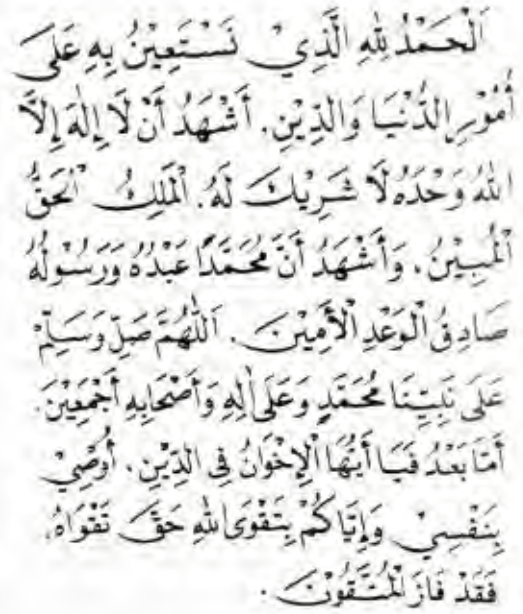 اَلْحَمْدُ لِلّٰهِ الَّذِيْ نَسْتَعِيْنُ بِهِ عَلَى
أُمُوْرِ الدُّنْيَا وَالدِّيْنِ. أَشْهَدُ أَنْ لَا إِلٰهَ إِلَّا
اللهُ وَحْدَهُ لَا شَرِيْكَ لَهُ. اَلْمَلِكُ الْحَقُّ
الْمُبِيْنُ. وَأَشْهَدُ أَنَّ مُحَمَّدًا عَبْدُهُ وَرَسُوْلُهُ
صَادِقُ الْوَعْدِ الْأَمِيْنَ. اَللّٰهُمَّ صَلِّ وَسَلِّمْ
عَلَى نَبِيِّنَا مُحَمَّدٍ وَعَلَى اٰلِهِ وَأَصْحَابِهِ أَجْمَعِيْنَ.
أَمَّا بَعْدُ فَيَا أَيُّهَا الْإِخْوَانُ فِى الدِّيْنِ. أُوْصِيْ
بِنَفْسِيْ وَإِيَّاكُمْ بِتَقْوَى اللهِ حَقَّ تَقْوَاهُ.
فَقَدْ فَازَ الْمُتَّقُوْنَ.